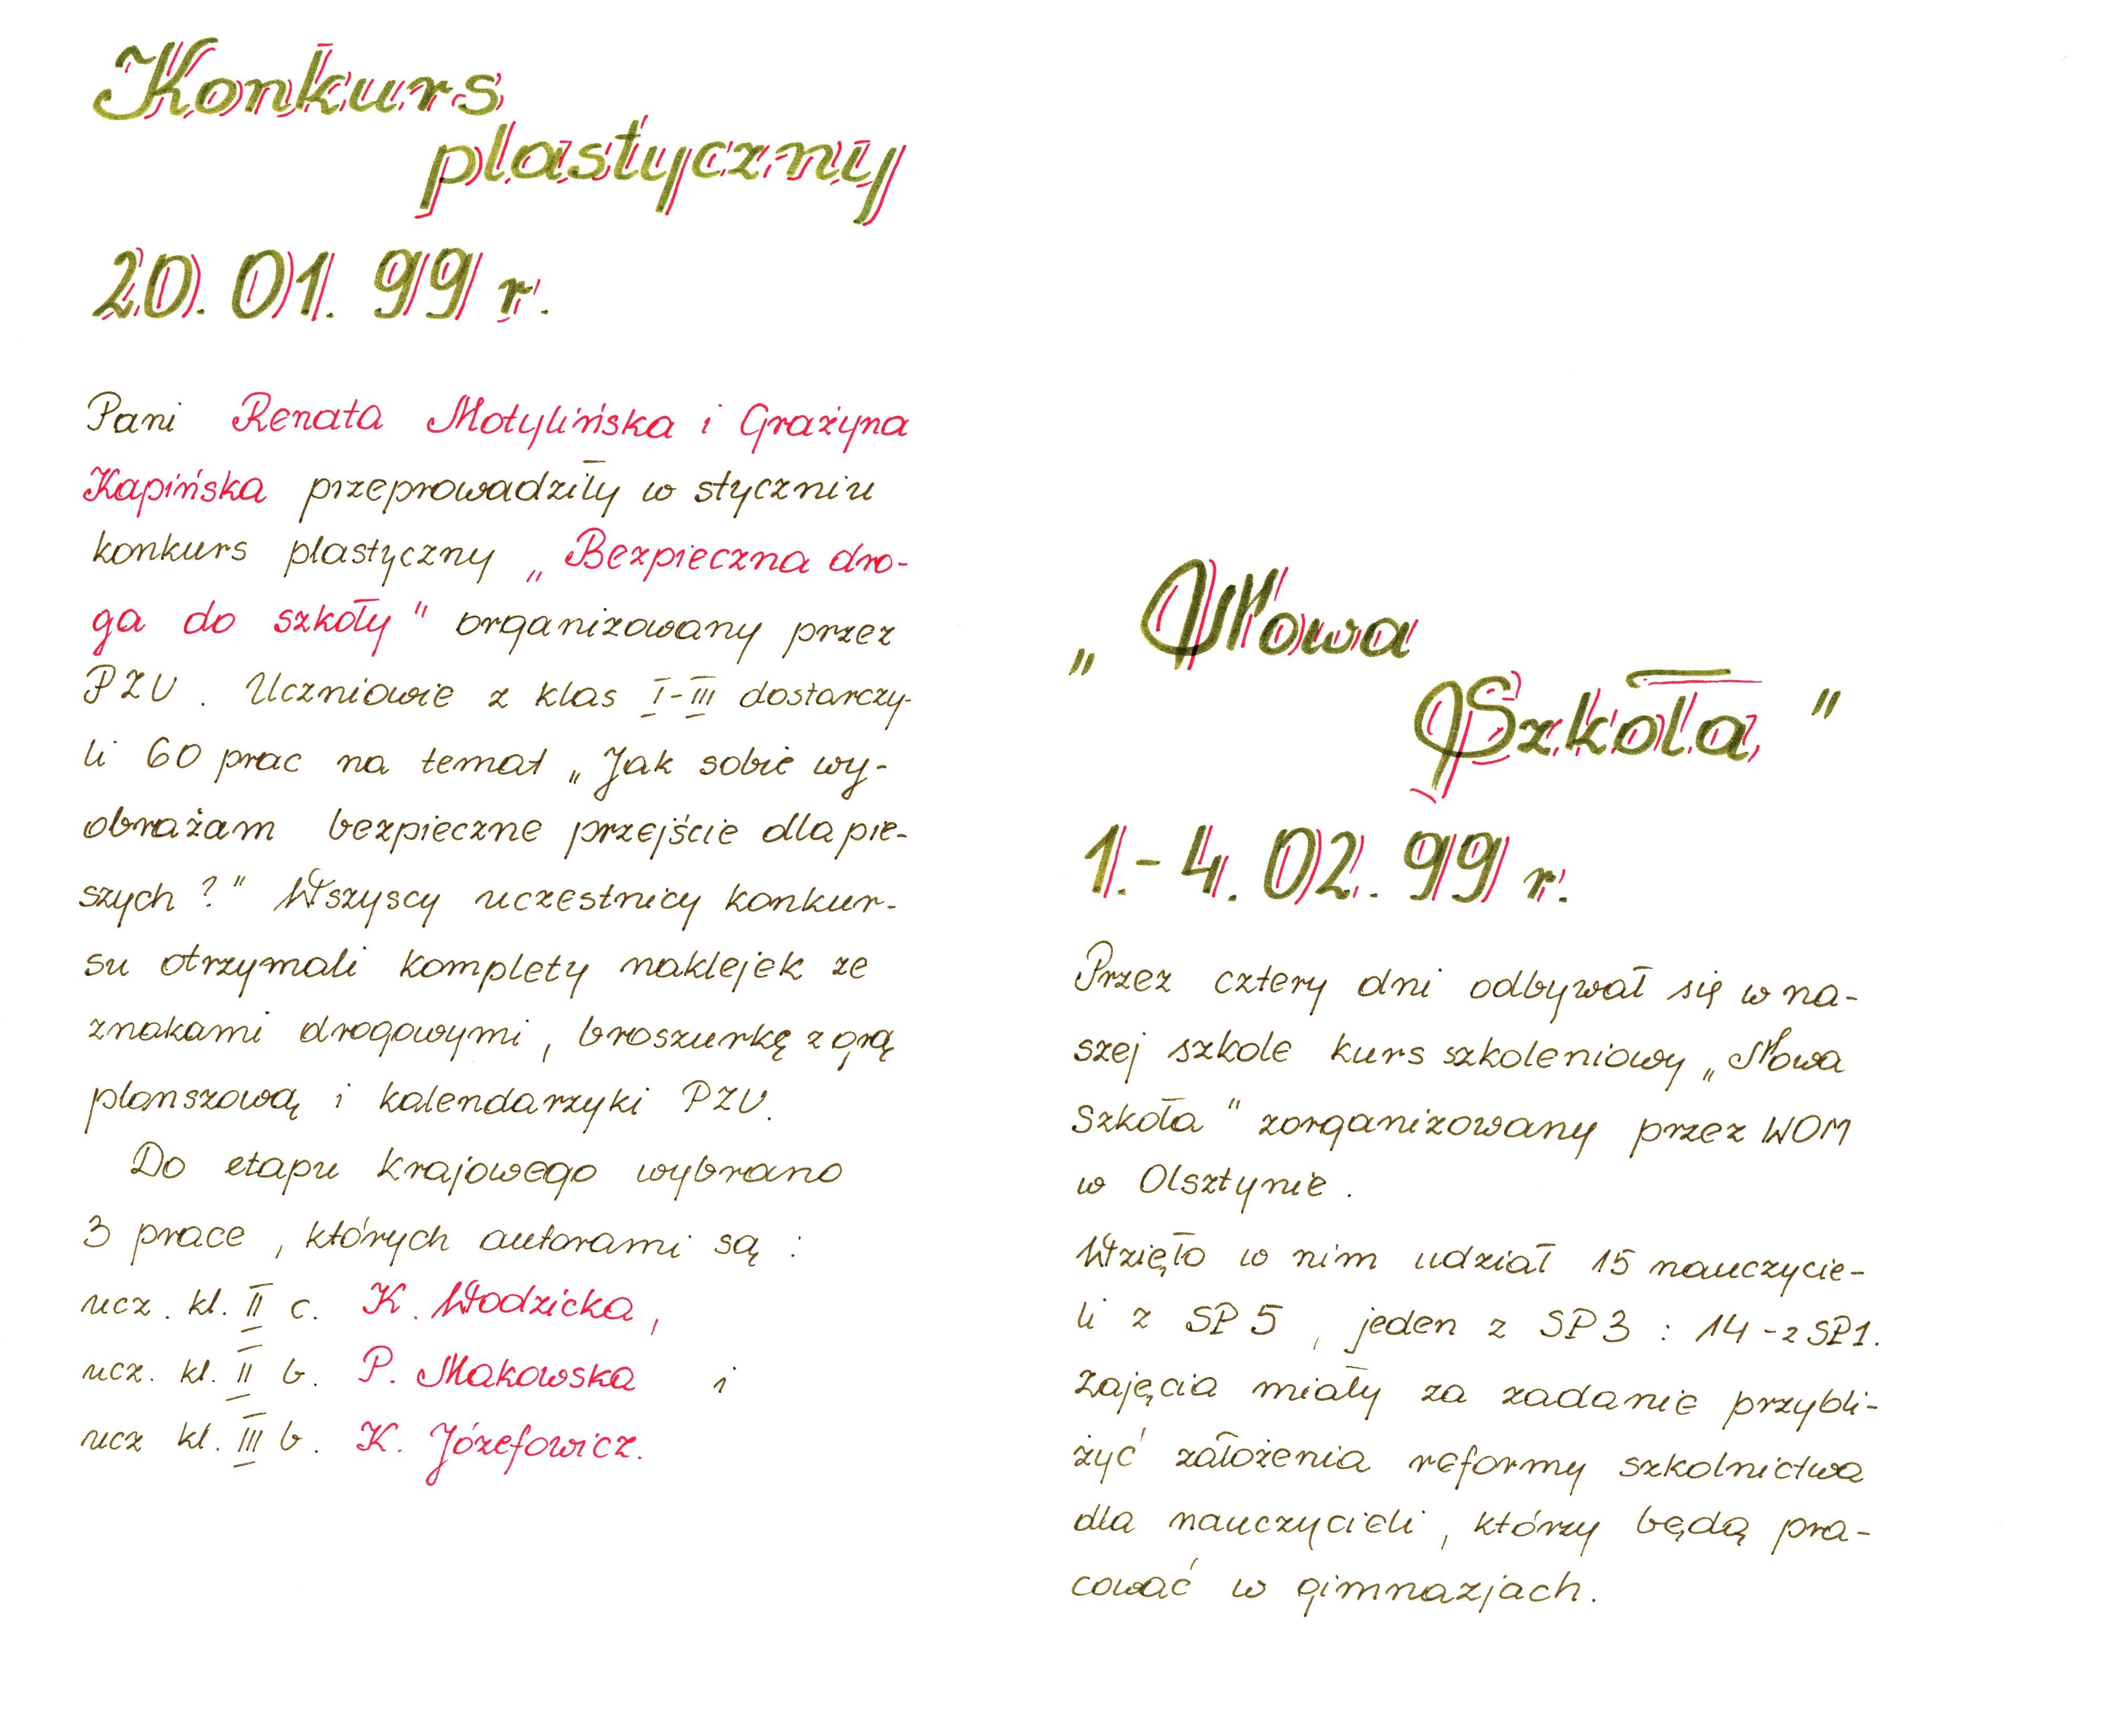 Konkurs
plastyczny
20.01.99 r.
Pani Renata Motylińska i Grażyna
Kapińska przeprowadziły w styczniu
konkurs plastyczny „Bezpieczna dro-
ga do szkoły" organizowany przez
PZU. Uczniowie z klas I-III dostarczy-
li 60 prac na temat „Jak sobie wy-
obrażam bezpieczne przejście dla pie-
szych?" Wszyscy uczestnicy konkur-
su otrzymali komplety naklejek ze
znakami drogowymi, broszurkę z grą
planszową i kalendarzyki PZU.
Do etapu krajowego wybrano
3 prace, których autorami są:
ucz. kl. II c. K. Włodzicka,
ucz. kl. II b. P. Makowska i
ucz kl. III b. K. Józefowicz.
„Nowa
Szkoła"
1.-4.02.99 r.
Przez cztery dni odbywał się w na-
szej szkole kurs szkoleniowy „Nowa
Szkoła" zorganizowany przez WOM
w Olsztynie.
Wzięło w nim udział 15 nauczycie-
li z SP 5, jeden z SP 3 : 14 - z SP1.
Zajęcia miały za zadanie przybli-
żyć założenia reformy szkolnictwa
dla nauczycieli, którzy będą pra-
cować w gimnazjach.